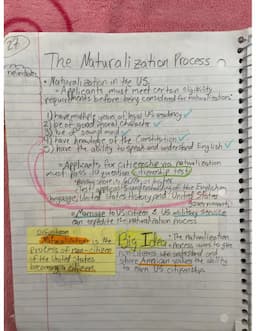 27
The Naturalization Process
• Naturalization in the US
• Applicants must meet certain eligibility
requirements before being considered for naturalization:
1) have multiple years of legal US residency ✓
2) be of good moral character ✓
3) be of sound mind ✓
4) have knowledge of the Constitution ✓
5) have the ability to speak and understand English ✓
• Applicants for citizenship via naturalization
must pass 10 question citizenship test
language, United States History, and United States
government
• Marriage to US citizen & US military service
can expedite the naturalization process
Definition
Naturalization is the
process of non-citizen
of the United States
becoming a citizen.
Big Idea
• The naturalization
process aims to give
non-citizens who understand and
share American values the ability
to earn US citizenship.